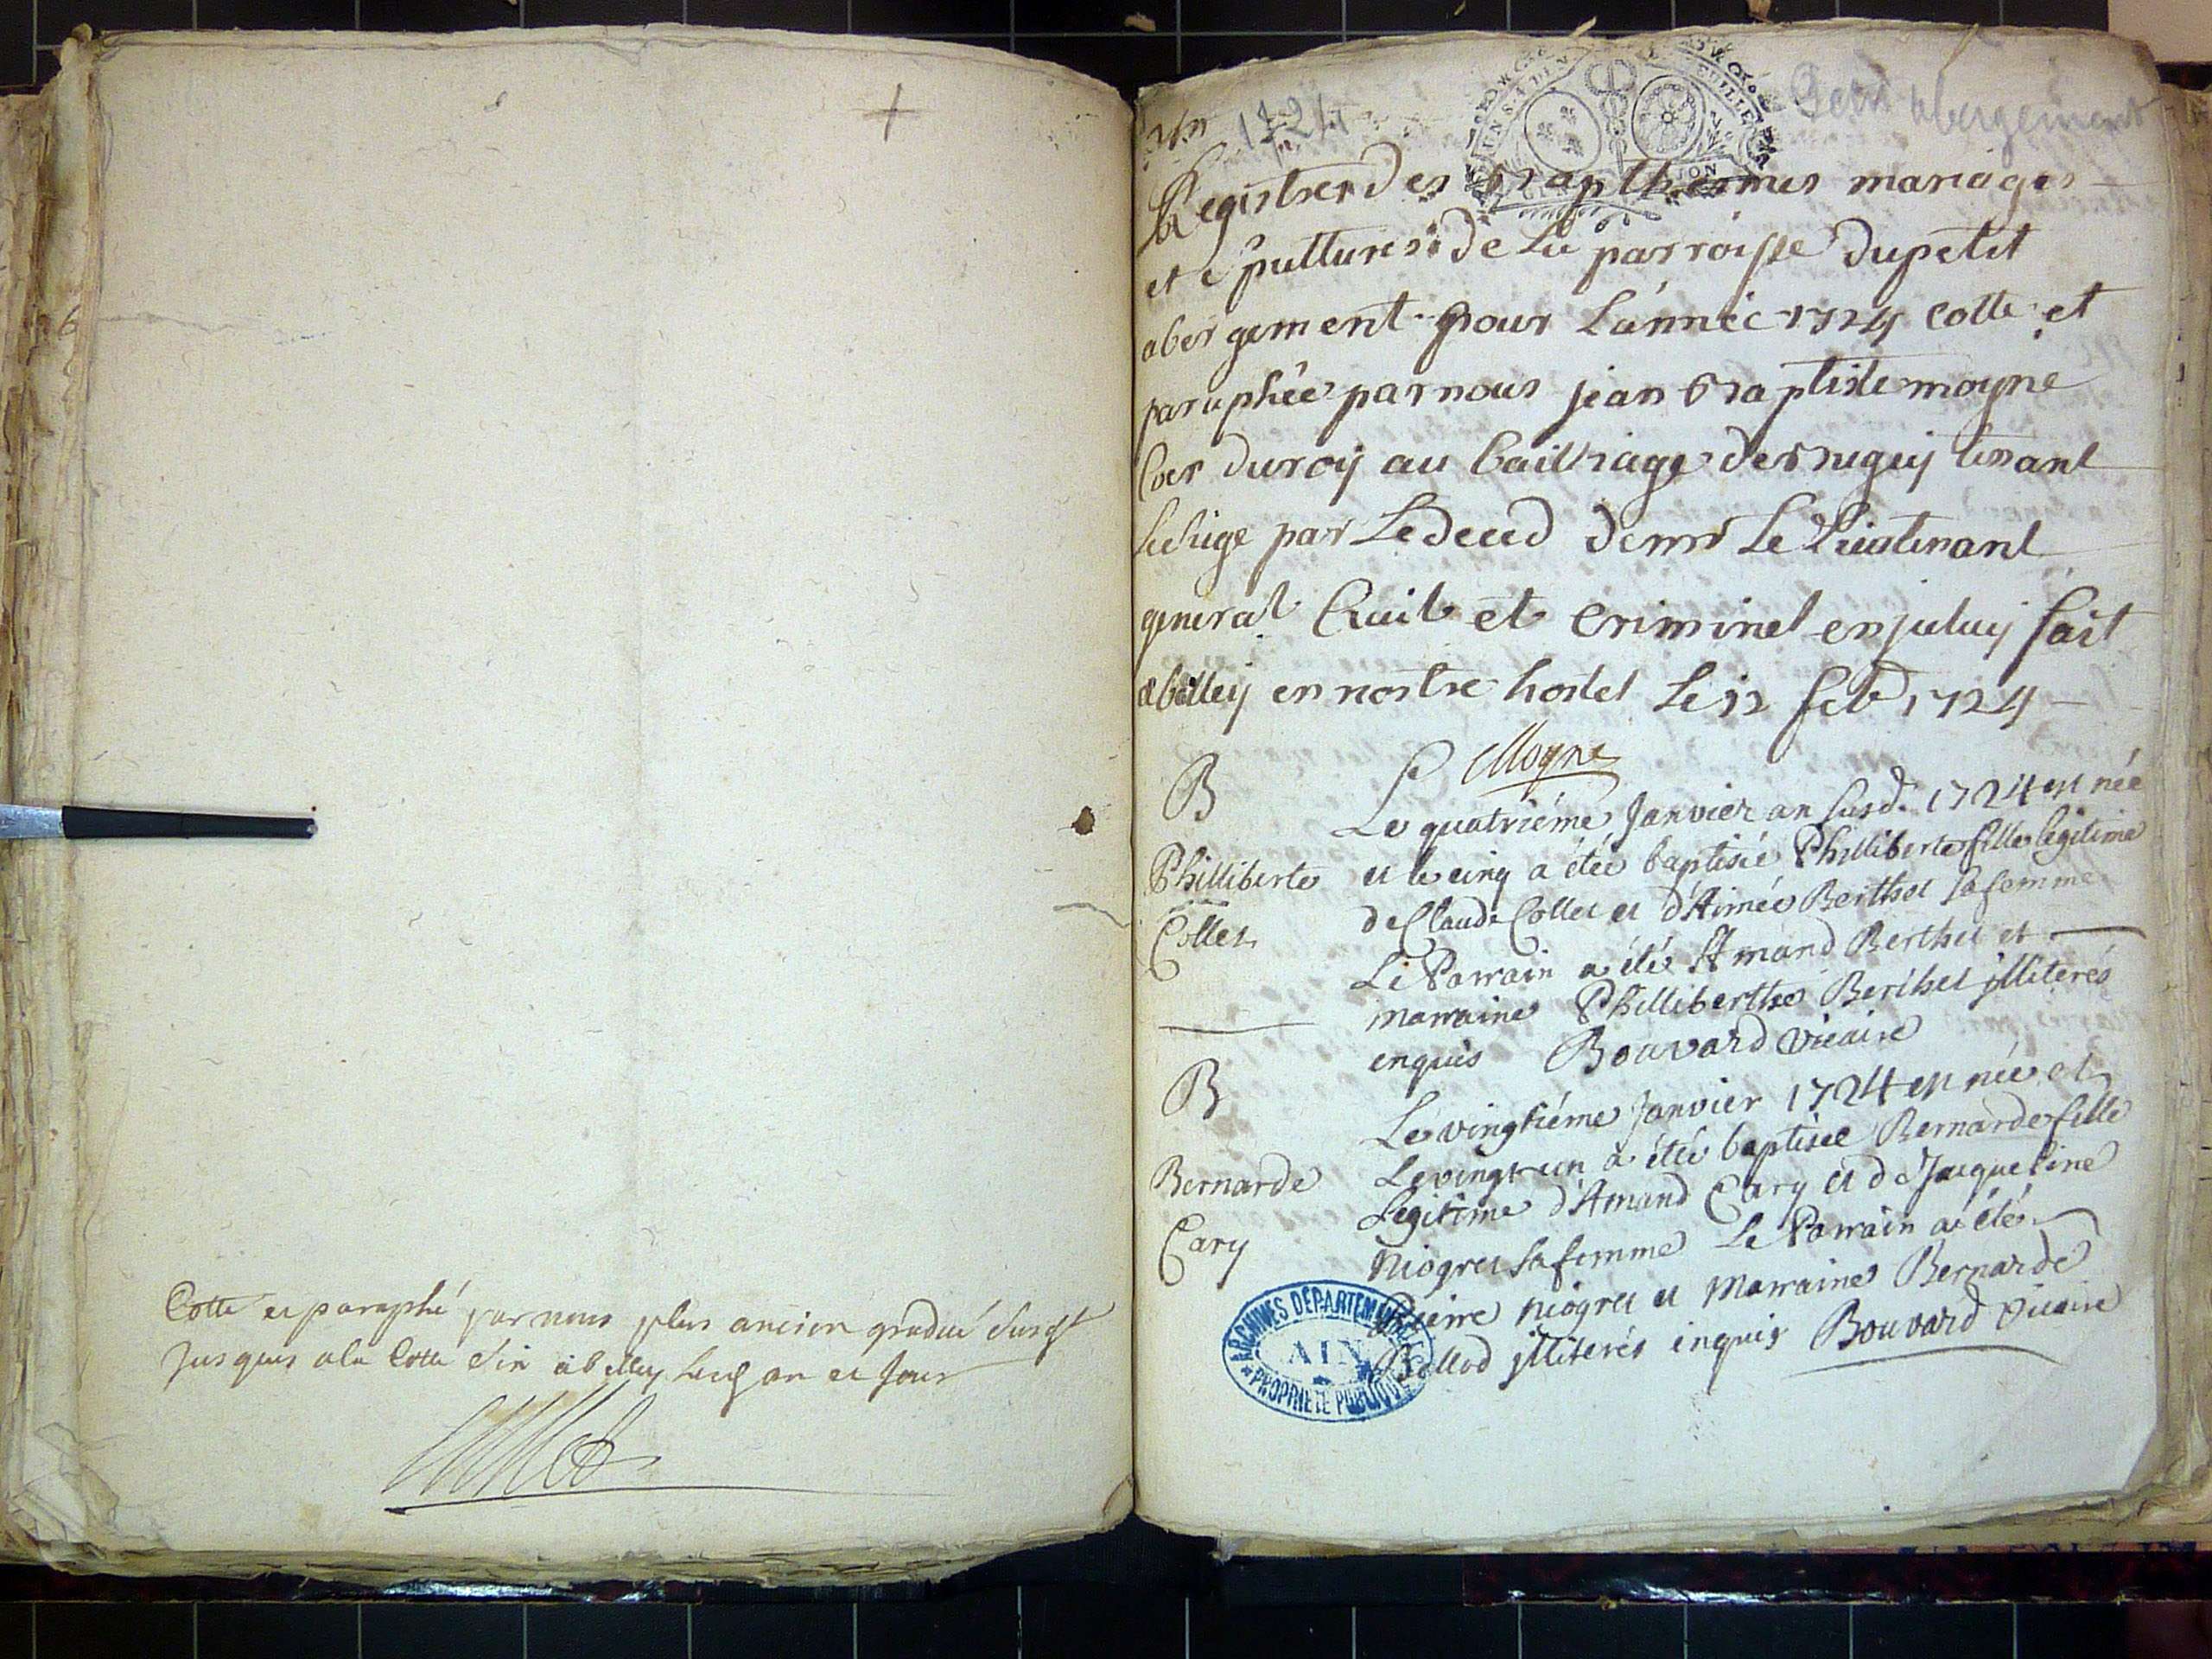 Cotte et paraphé par nous plus ancien gradué susdt
Jusques a la Cotte Six a belley lesd an et Jour
1724
Petit abergement
Registre des Bapthesmes mariages
et Sepultures de La parroisse du petit
abergement pour Lánnée 1724 Cotte et
paraphée par nous jean Baptiste moyne
Coer du roy au Bailliage de Bugey tenant
Le siege par Le deced de mr Le Lieutenant
general Civil et Criminel en jceluy fait
a belley en nostre hostel Le 12 feb 1724
Moyne
B
Philliberte
Collet
Le quatriéme Janvier an susd. 1724 est née
et le cinq a étée baptisée Philliberte fille légitime
de Claude Collet et d'Aimée Berthet sa femme
Le Parrain a été Amand Berthet et
marraine Philliberthe Berthet jlliterés
enquis Bouvard vicaire
B
Bernarde
Cary
Le vingtiéme Janvier 1724 est née et
Le vingt un a étée baptisée Bernarde fille
Légitime d'Amand Cary et de Jacqueline
Niogret sa femme Le Parrain a été
Pierre Niogret et Marraine Bernarde
Ballod jlliterés enquis Bouvard vicaire
ARCHIVES DÉPARTEMENTALES
AIN
PROPRIÉTÉ PUBLIQUE